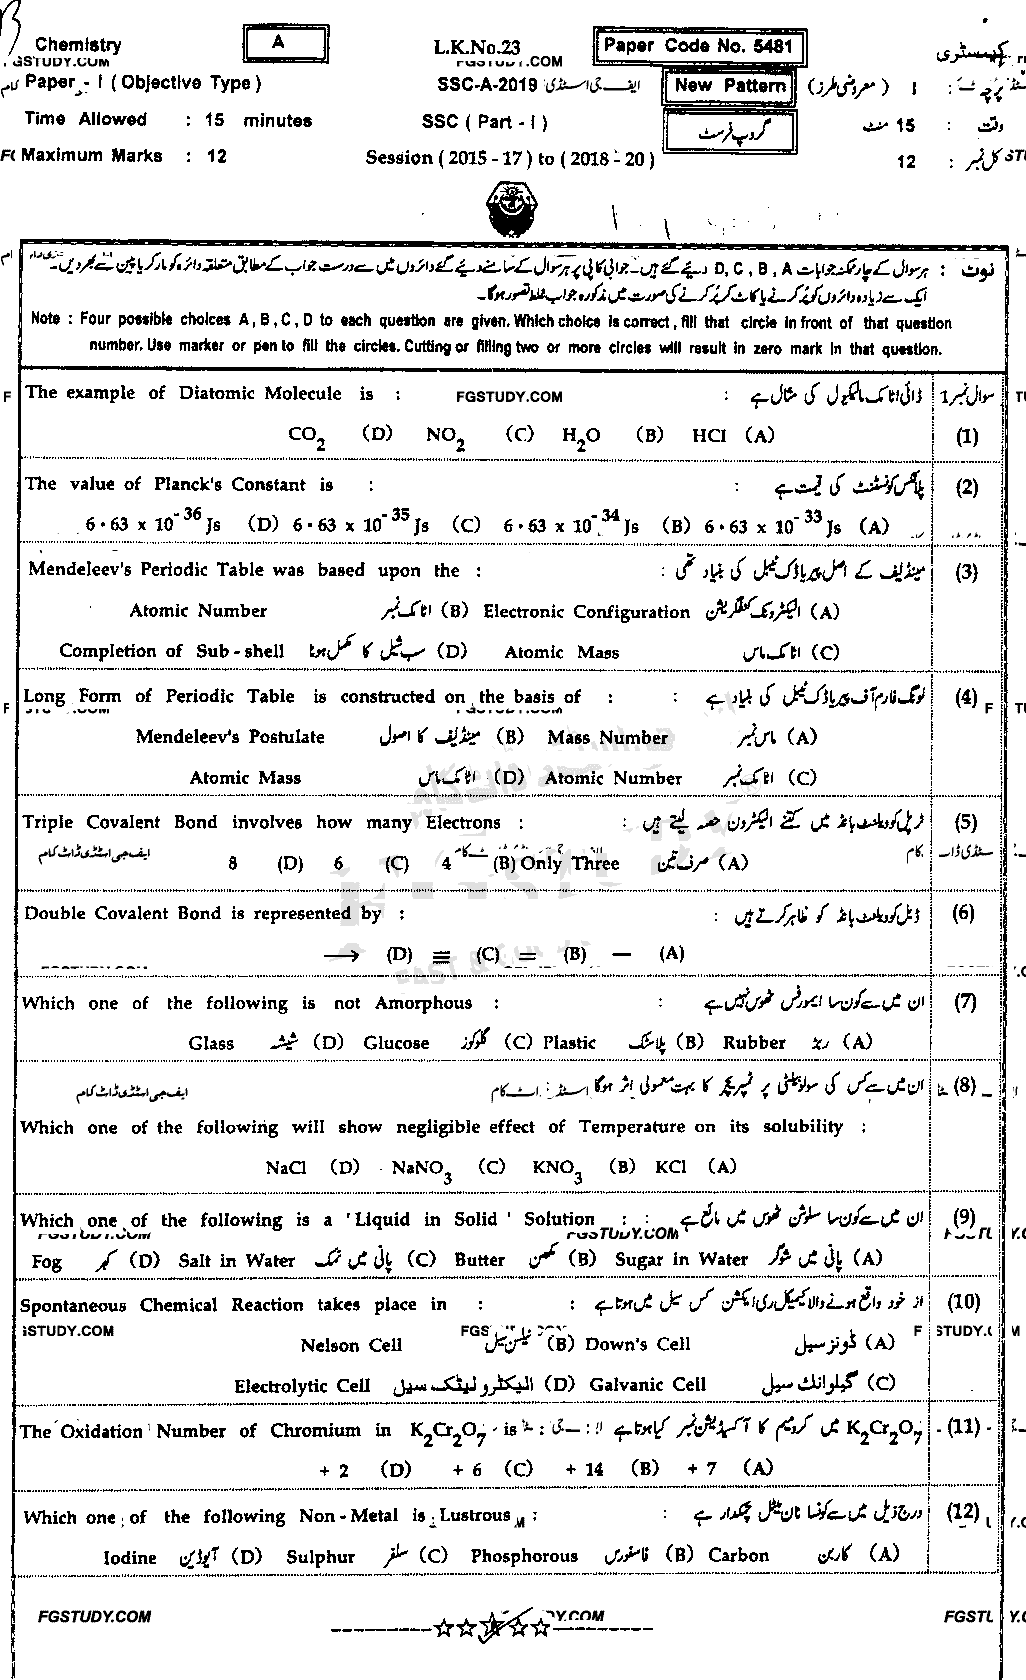 Chemistry A L.K.No.23 Paper Code No. 5481 کیمسٹری
GSTUDY.COM FGSTUDY.COM
Paper - I ( Objective Type ) SSC-A-2019 ایف جی اسٹڈی New Pattern ( معروضی طرز ) I پرچہ :
Time Allowed : 15 minutes SSC ( Part - I ) گروپ فرسٹ وقت : 15 منٹ
Maximum Marks : 12 Session ( 2015 - 17 ) to ( 2018 - 20 ) کل نمبر : 12
نوٹ : ہر سوال کے چار ممکنہ جوابات D, C, B, A دیئے گئے ہیں۔ جوابی کاپی پر ہر سوال کے سامنے دیئے گئے دائروں میں سے درست جواب کے مطابق متعلقہ دائرہ کو مارکر یا پین سے بھر دیں۔
ایک سے زیادہ دائروں کو پُر کرنے یا کاٹ کر پُر کرنے کی صورت میں مذکورہ جواب غلط تصور ہوگا۔
Note : Four possible choices A, B, C, D to each question are given. Which choice is correct, fill that circle in front of that question
number. Use marker or pen to fill the circles. Cutting or filling two or more circles will result in zero mark in that question.
The example of Diatomic Molecule is : FGSTUDY.COM : ڈائی اٹامک مالیکیول کی مثال ہے سوال نمبر 1
CO2 (D) NO2 (C) H2O (B) HCl (A) (1)
The value of Planck's Constant is : : پلانکس کونسٹنٹ کی قیمت ہے (2)
6·63 x 10^-36 Js (D) 6·63 x 10^-35 Js (C) 6·63 x 10^-34 Js (B) 6·63 x 10^-33 Js (A)
Mendeleev's Periodic Table was based upon the : : مینڈلیف کے اصل پیریاڈک ٹیبل کی بنیاد تھی (3)
Atomic Number اٹامک نمبر (B) Electronic Configuration الیکٹرونک کنفگریشن (A)
Completion of Sub - shell سب شیل کا مکمل ہونا (D) Atomic Mass اٹامک ماس (C)
Long Form of Periodic Table is constructed on the basis of : : لونگ فارم آف پیریاڈک ٹیبل کی بنیاد ہے (4)
Mendeleev's Postulate مینڈلیف کا اصول (B) Mass Number ماس نمبر (A)
Atomic Mass اٹامک ماس (D) Atomic Number اٹامک نمبر (C)
Triple Covalent Bond involves how many Electrons : : ٹرپل کوویلنٹ بانڈ میں کتنے الیکٹرون حصہ لیتے ہیں (5)
ایف جی اسٹڈی ڈاٹ کام 8 (D) 6 (C) 4 (B) Only Three صرف تین (A)
Double Covalent Bond is represented by : : ڈبل کوویلنٹ بانڈ کو ظاہر کرتے ہیں (6)
⟶ (D) ≡ (C) = (B) — (A)
FGSTUDY.COM
Which one of the following is not Amorphous : : ان میں سے کون سا ایمورفس ٹھوس نہیں ہے (7)
Glass شیشہ (D) Glucose گلوکوز (C) Plastic پلاسٹک (B) Rubber ربڑ (A)
ایف جی اسٹڈی ڈاٹ کام ان میں سے کس کی سولوبیلٹی پر ٹمپریچر کا بہت معمولی اثر ہوگا (8)
Which one of the following will show negligible effect of Temperature on its solubility :
NaCl (D) NaNO3 (C) KNO3 (B) KCl (A)
Which one of the following is a ' Liquid in Solid ' Solution : : ان میں سے کون سا سلوشن ٹھوس میں مائع ہے (9)
FGSTUDY.COM FGSTUDY.COM
Fog کہر (D) Salt in Water پانی میں نمک (C) Butter مکھن (B) Sugar in Water پانی میں شوگر (A)
Spontaneous Chemical Reaction takes place in : : از خود واقع ہونے والا کیمیکل ری ایکشن کس سیل میں ہوتا ہے (10)
GSTUDY.COM STUDY.C
Nelson Cell نیلسن سیل (B) Down's Cell ڈونز سیل (A)
Electrolytic Cell الیکٹرولیٹک سیل (D) Galvanic Cell گیلوانک سیل (C)
The Oxidation Number of Chromium in K2Cr2O7 is : K2Cr2O7 میں کرومیم کا آکسیڈیشن نمبر کیا ہوتا ہے (11)
+ 2 (D) + 6 (C) + 14 (B) + 7 (A)
Which one of the following Non - Metal is Lustrous : : درج ذیل میں سے کونسا نان میٹل چمکدار ہے (12)
Iodine آیوڈین (D) Sulphur سلفر (C) Phosphorous فاسفورس (B) Carbon کاربن (A)
FGSTUDY.COM DY.COM FGSTU